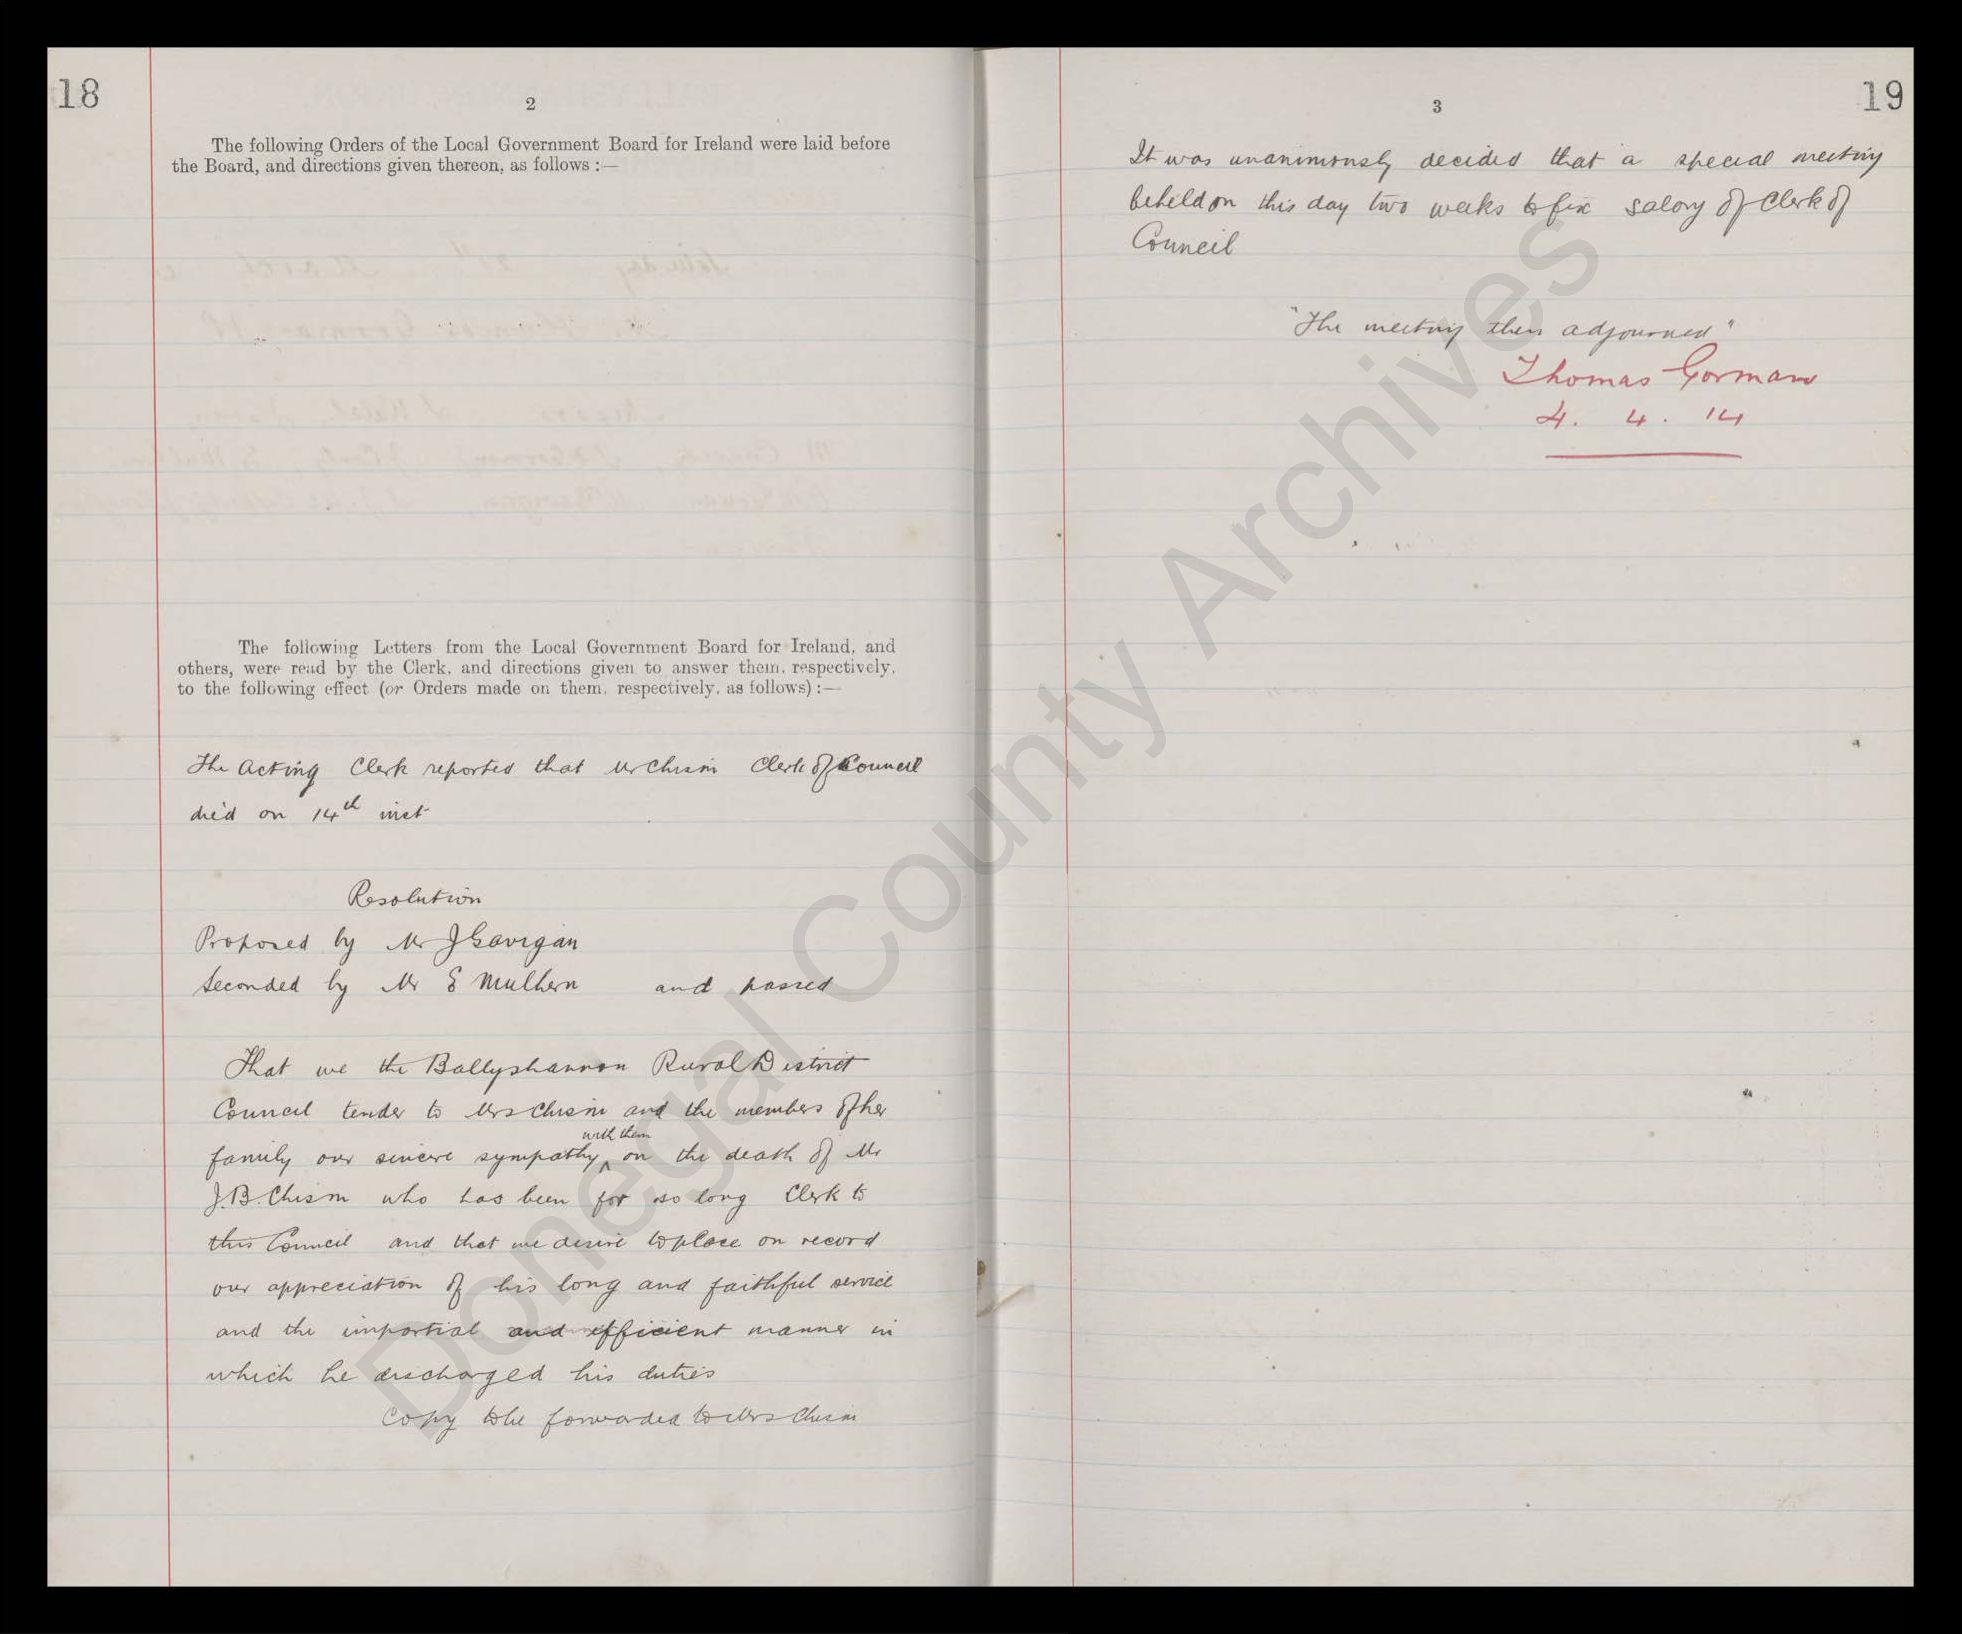 18
2
The following Orders of the Local Government Board for Ireland were laid before
the Board, and directions given thereon, as follows :—
The following Letters from the Local Government Board for Ireland, and
others, were read by the Clerk, and directions given to answer them, respectively,
to the following effect (or Orders made on them, respectively, as follows) :—
The Acting Clerk reported that Mr Chism Clerk of Council
died on 14th inst
Resolution
Proposed by Mr J Gavigan
Seconded by Mr E Mulhern and passed
That we the Ballyshannon Rural District
Council tender to Mrs Chism and the members of her
with them
family our sincere sympathy ‸ on the death of Mr
J.B. Chism who has been for so long Clerk to
this Council and that we desire to place on record
our appreciation of his long and faithful service
and the impartial and efficient manner in
which he discharged his duties
Copy to be forwarded to Mrs Chism
3
19
It was unanimously decided that a special meeting
be held on this day two weeks to fix salary of Clerk of
Council
"The meeting then adjourned"
Thomas Gorman
4. 4. 14
Donegal County Archives